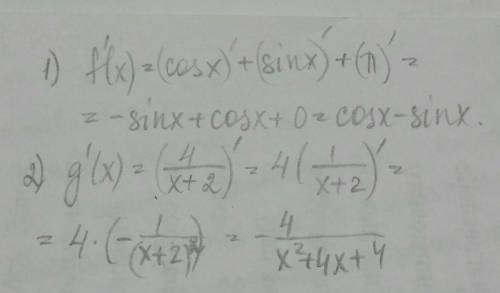 1) f'(x) = (cosx)' + (sinx)' + (π)' =
= -sinx + cosx + 0 = cosx - sinx.
2) g'(x) = (4/(x+2))' = 4(1/(x+2))' =
= 4·(-1/(x+2)²) = -4/(x²+4x+4)